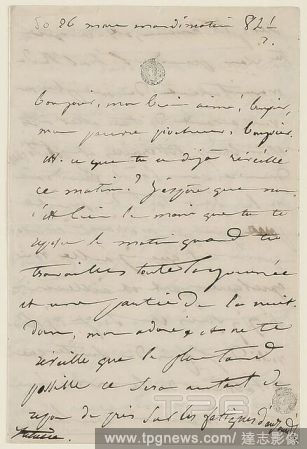 26 mars mardi matin 8h
Bonjour, mon bien aimé, bonjour,
mon pauvre piocheur, bonjour.
Est-ce que tu es déjà réveillé
ce matin? J'espère que non
c'est bien le moins que tu te
reposes le matin quand tu
travailles toute la journée
et une partie de la nuit.
Dors, mon adoré, et ne te
réveille que le plus tard
possible ce sera autant de
repos de pris sur les fatigues
Juliette.
TPG
www.tpgnews.com/達志影像